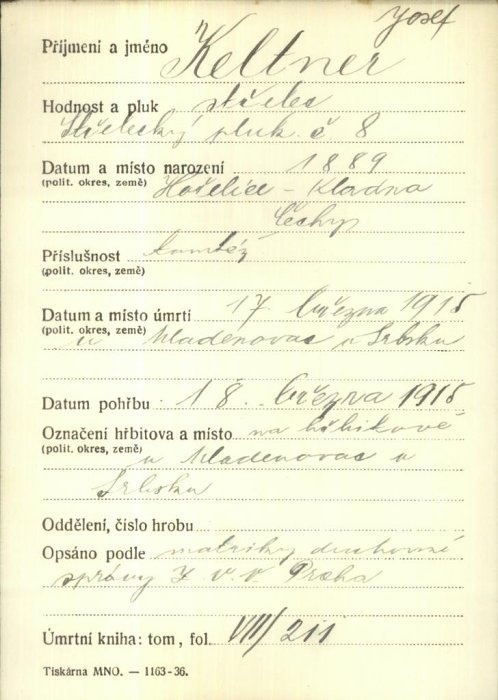 Josef
Příjmení a jméno Keltner
Hodnost a pluk střelec
Střelecký pluk č 8
Datum a místo narození 1889
(polit. okres, země) Hořelice - Kladno
Čechy
Příslušnost tamtéž
(polit. okres, země)
Datum a místo úmrtí 17 března 1915
(polit. okres, země) u Mladenovac v Srbsku
Datum pohřbu 18. března 1915
Označení hřbitova a místo na hřbitově
(polit. okres, země) u Mladenovac v
Srbsku
Oddělení, číslo hrobu
Opsáno podle matriky duchovní
správy Z. V. V. Praha
Úmrtní kniha: tom, fol. VIII/211
Tiskárna MNO. — 1163-36.